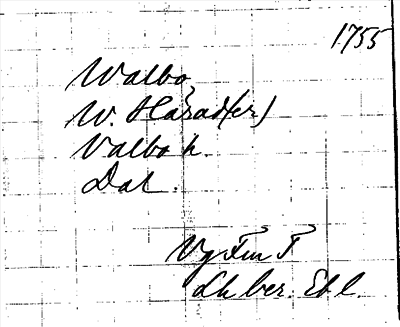 1755
Walbo,
W. Harad(er)
Valbo h.
Dal.
Vg Fm T
Lh ber. Ebl.